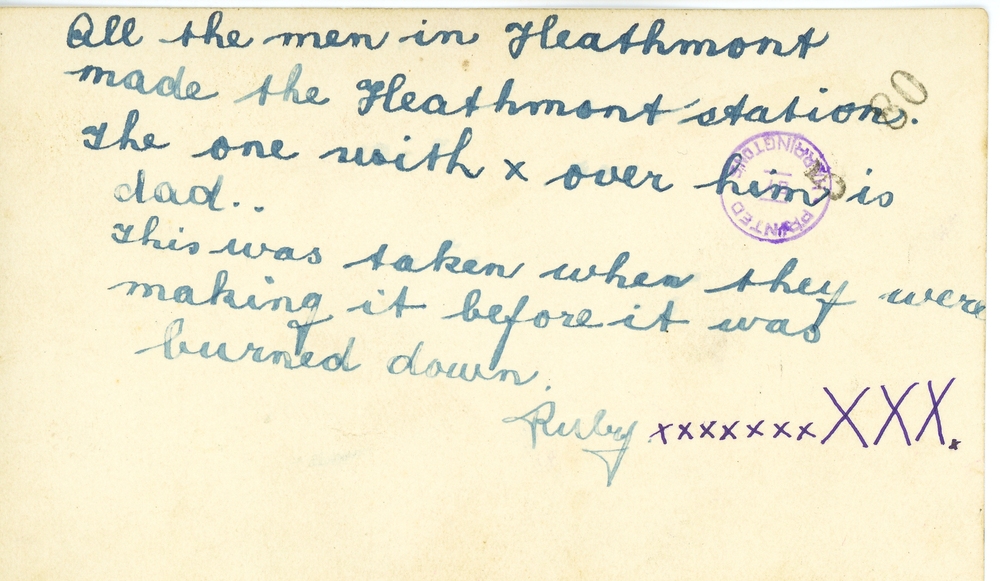 All the men in Heathmont
made the Heathmont station.
The one with x over him is
dad..
This was taken when they were
making it before it was
burned down.
Ruby xxxxxxxXXX.
80
PRINTED